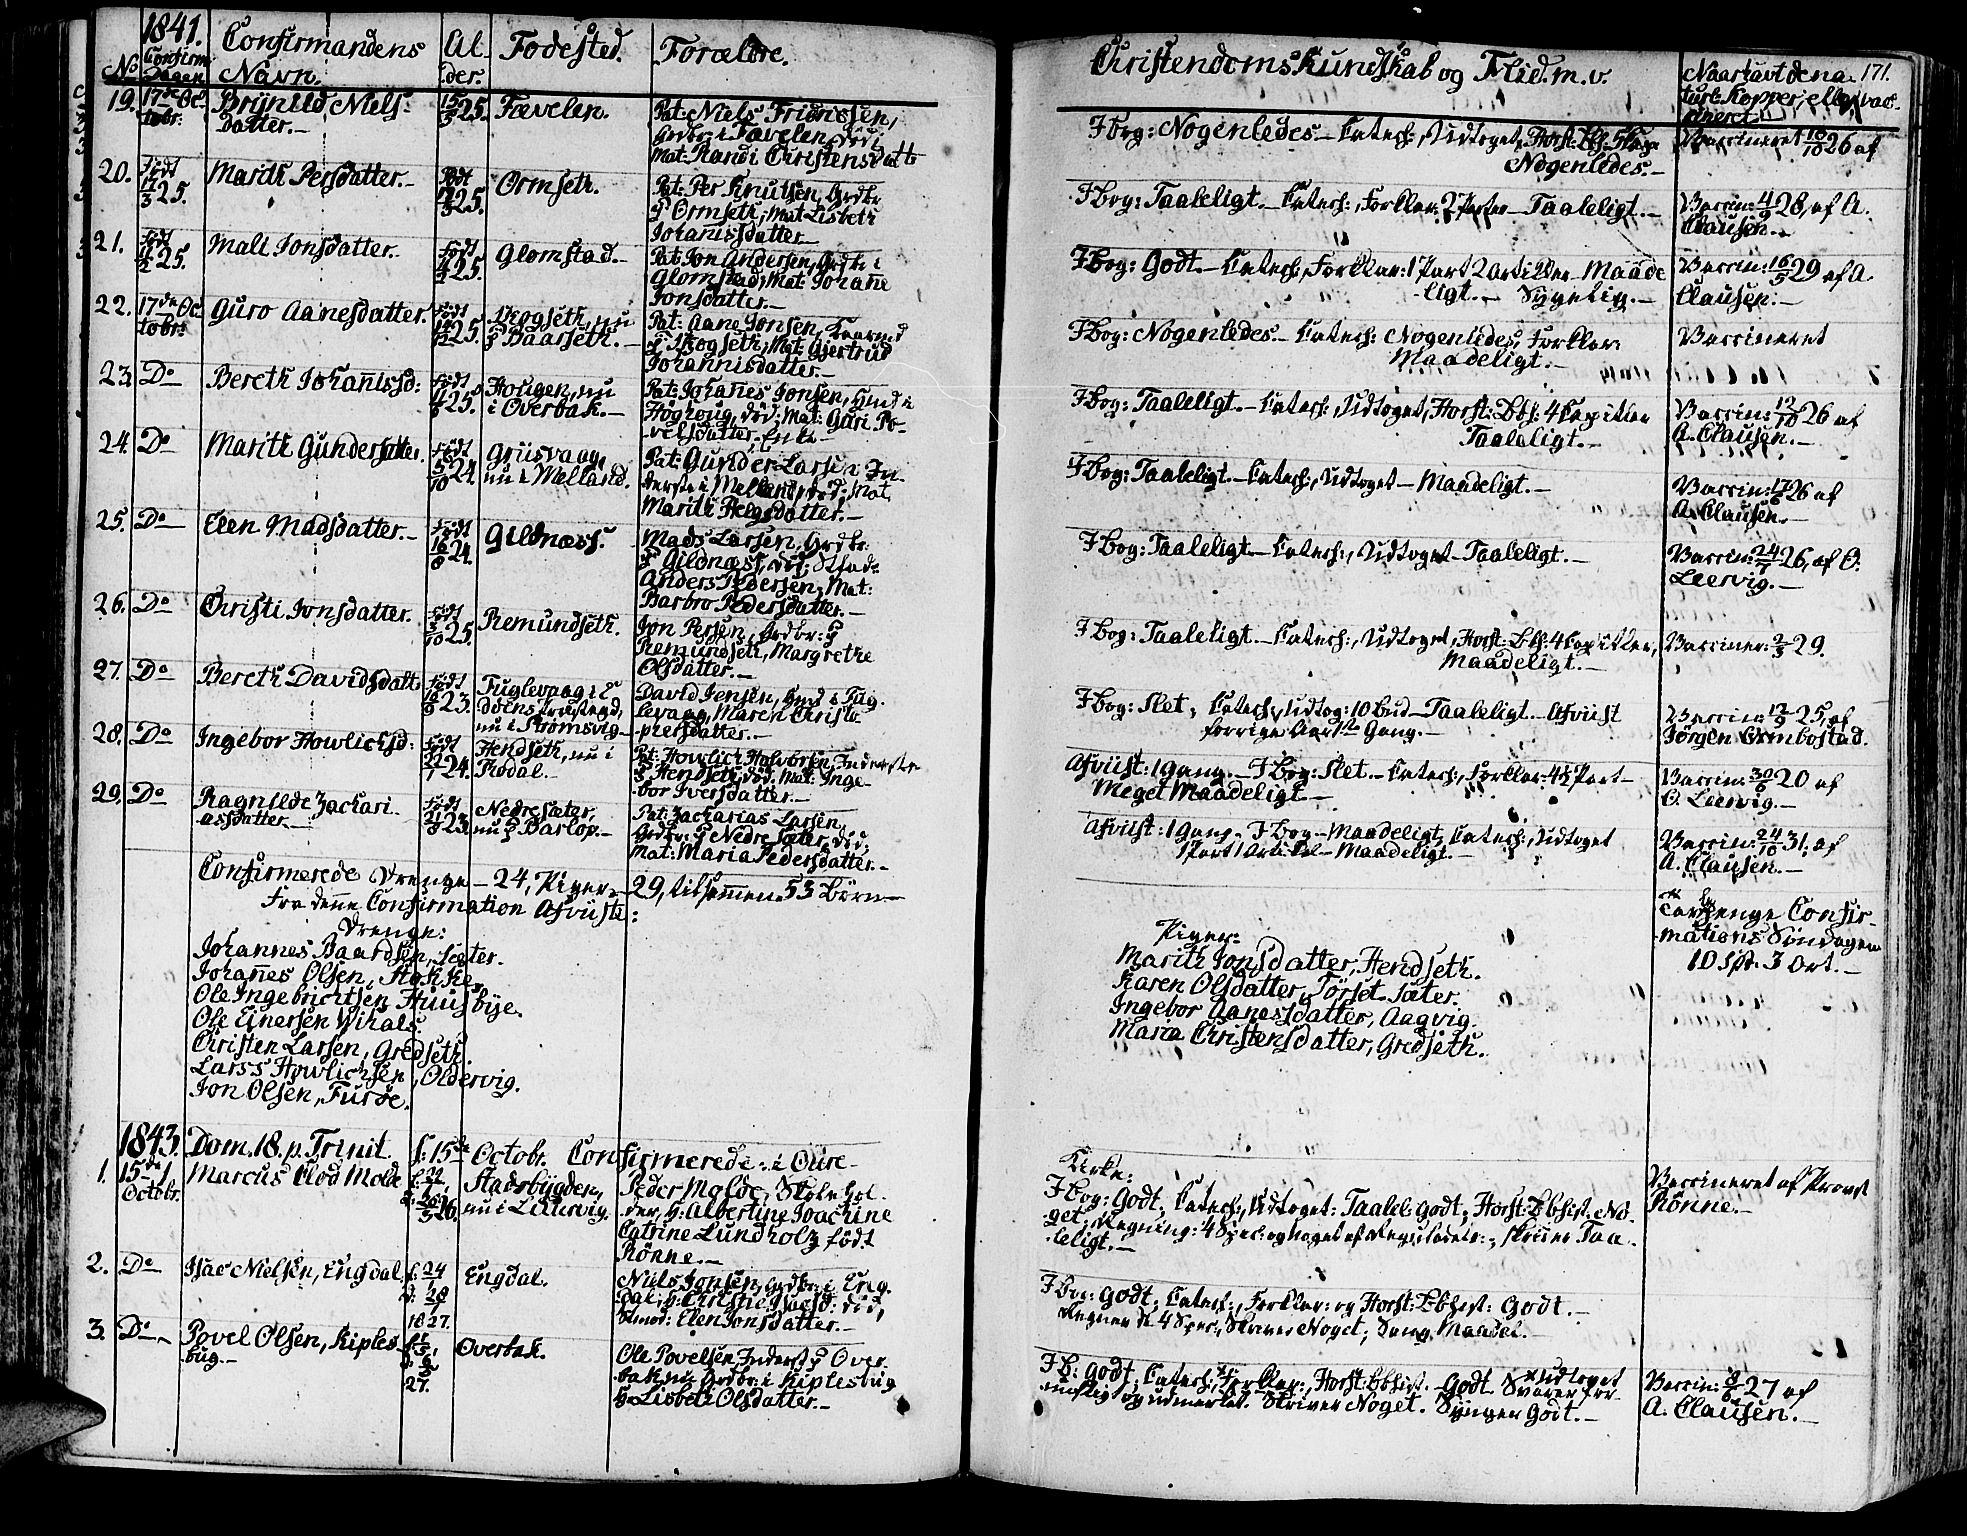 1841.
No Confirm: Dagen Confirmandens Navn. Alder. Fødested. Forældre.
Christendoms Kundskab og Flid. m. v.
171.
19. 17de Octobr: Brynild Nielsdatter.— 15/3 25. Fævelen.
Pat: Niels Fridricsen,
i Fævelen, død,
Mat: Randi Christensdatter
Jbog: Nogenledes.— Catech:, Udtoget,
Nogenledes.—
Vaccineret 18/10 26 af
20. Født 17/3 25. Marith Persdatter.— Født 17/3 25. Ormseth.
Pat: Per Knutsen, Grdbr
Ormseth, Mat: Lisbeth
Johannisdatter.—
Jbog: Taaleligt.— Catech:, Forklar: 2 Parter— Taaleligt.—
Vaccin: 4/9 28, af A.
Clausen.—
21. Mali Jonsdatter. Født 25. Glomstad.—
Pat: Jon Andersen, Grdbr: i
Glomstad, Mat: Johane
Jonsdatter.—
Jbog: Godt.— Catech:, Forklar: 1 Part 2 Artikler Maadeligt.— Sygelig.—
Vaccin: 16/5 29 af A.
Clausen.—
22. 17de Octobr: Guro Aanesdatter. Født 25. Skogseth, nu
Baarseth.—
Pat: Aane Jonsen, Kaarmd
Skogseth, Mat: Gjertrud
Johannisdatter.—
Jbog: Nogenledes.— Catech: Nogenledes, Forklar:
Maadeligt.—
Vaccineret
23. Do Bereth Johannisd: Født 25. Hougen, nu
i Overbak.—
Pat: Johannes Jonsen, Huusmd i
Høghoug, død, Mat: Guri Povelsdatter, Enke—
Jbog: Taaleligt.— Catech:, Udtoget, Horst: Bbh: 4 Capitler
Taaleligt.—
Vaccin: 12/10 26 af
A. Clausen.—
24. Do Marith Gundersdatter. Født 5/10 24. Griisvaag,
nu i Melland.
Pat: Gunder Larsen Inderste i Melland, død, Mat
Marith Helgsdatter.—
Jbog: Taaleligt.— Catech:, Udtoget— Maadeligt.—
Vaccin: 17/6 26 af
A. Clausen.—
25. Do Elen Madsdatter.— Født 16/8 24. Gildnæss.
Mads Larsen, Grdbr:
Gildnæss, død; Stfad:
Anders Pedersen, Mat:
Barbro Pedersdatter.—
Jbog: Taaleligt.— Catech:, Udtoget— Taaleligt.—
Vaccin: 24/7 26, af O.
Leervig.—
26. Do Christi Jonsdatter. Født 3/10 25. Remundseth.
Jon Persen, Grdbr:
Remundseth, Margrethe
Olsdatter.—
Jbog: Taaleligt.— Catech:, Udtoget, Horst: Bbh: 4 Capitler,
Maadeligt.—
Vacciner: 2/3 29.
27. Do Bereth Davidsdatt Født 23. Fuglevaag i Edøens Præstegd,
nu i Strømsvig.—
David Jensen, Huusmd i Fuglevaag, Maren Christophersdatter.—
Jbog: Slet, Catech:, Udtog: 10 Bud— Taaleligt.— Afviist
forrige Aar 1ste Gang.—
Vaccin: 12/9 25, af
Jørgen Ormbostad.
28. Do Ingebor Howlichsd: Født 24. Hendseth, nu i
Rodal.—
Pat: Howlich Halvorsen, Inderste
Hendseth, død, Mat: Ingebor Iversdatter.—
Afviist: 1 Gang.— Jbog: Slet.— Catech:, Forklar: 4de Part—
Meget Maadeligt.—
Vaccin: 30/6 20 af
O. Leervig.—
29. Do Ragnilde Zachariasdatter.— Født 23. Nedresæter,
nu Barlop.—
Pat: Zacharias Larsen,
Grdbr: Nedresæter, død,
Mat: Maria Pedersdatter.—
Afviist: 1 Gang. Jbog— Maadeligt, Catech:, Udtoget
1 Part 1 Artikel— Maadeligt.—
Vaccin: 24/10 31, af
A. Clausen.—
Confirmerede Drenge— 24, Piger— 29, tilsammen 53 Børn—
Fra denne Confirmation Afviiste:
Drenge:
Johannes Baardsen, Sæter.
Johannes Olsen, Stokke,
Ole Ingebrichtsen Huusbye.
Ole Einersen Wihals.
Christen Larsen, Gredseth.
Larss Howlichsen, Oldervig.
Jon Olsen, Furøe.
Piger:
Marith Jonsdatter, Hendseth.
Karen Olsdatter, Torset Sæter.
Ingebor Aanesdatter, Aagvig.
Maria Christensdatter, Gredseth.
Tavlepenge Confirmations Søndagen
10 Spd. 3 Ort.—
1843. Dom. 18. p. Trinit. d: 15de Octobr. Confirmerede: i Qure
Kirke:
1. 15de Octobr. Marcus Clod Molde 26. Stadsbygden,
nu i Leervig.
Peder Molde, Skoleholder, h: Albertine Joachine
Catrine Lundholz født
Rönne.—
Jbog: Godt, Catech:, Udtoget: Taalel: Godt, Horst: Bbhist. Noget, Regning: 4 Spec: og noget af Reguladetri, Skriver Taaleligt.—
Vaccineret af Provst
Rönne.—
2. Do Isac Nielsen, Engdal. f: 24/1 d: 28/1 1827. Engdal.
Niels Jonsen, Grdbr: i Engdal, h: Christie Isacsd: død,
Stmod: Elen Jonsdatter.—
Jbog: Godt, Catech:, Forklar: og Horst: Bbhist: Godt.—
Regner de 4 Spec:, Skriver Noget, Sang Maadel.—
3. Do— Povel Olsen, Kiplesbug.— 27. Overbak.
Ole Povelsen Inderst Overbak nu Grdbr: i Kiplesbug
h: Lisbet Olsdatter.—
Jb: Godt, Catech:, Forklar:, Horst: Bbhist. Godt. × Udtoget
Svarer fornuftig og udmærket. Skriver Noget. Synger Godt.—
Vaccin: 8/6 27 af
A. Clausen.—